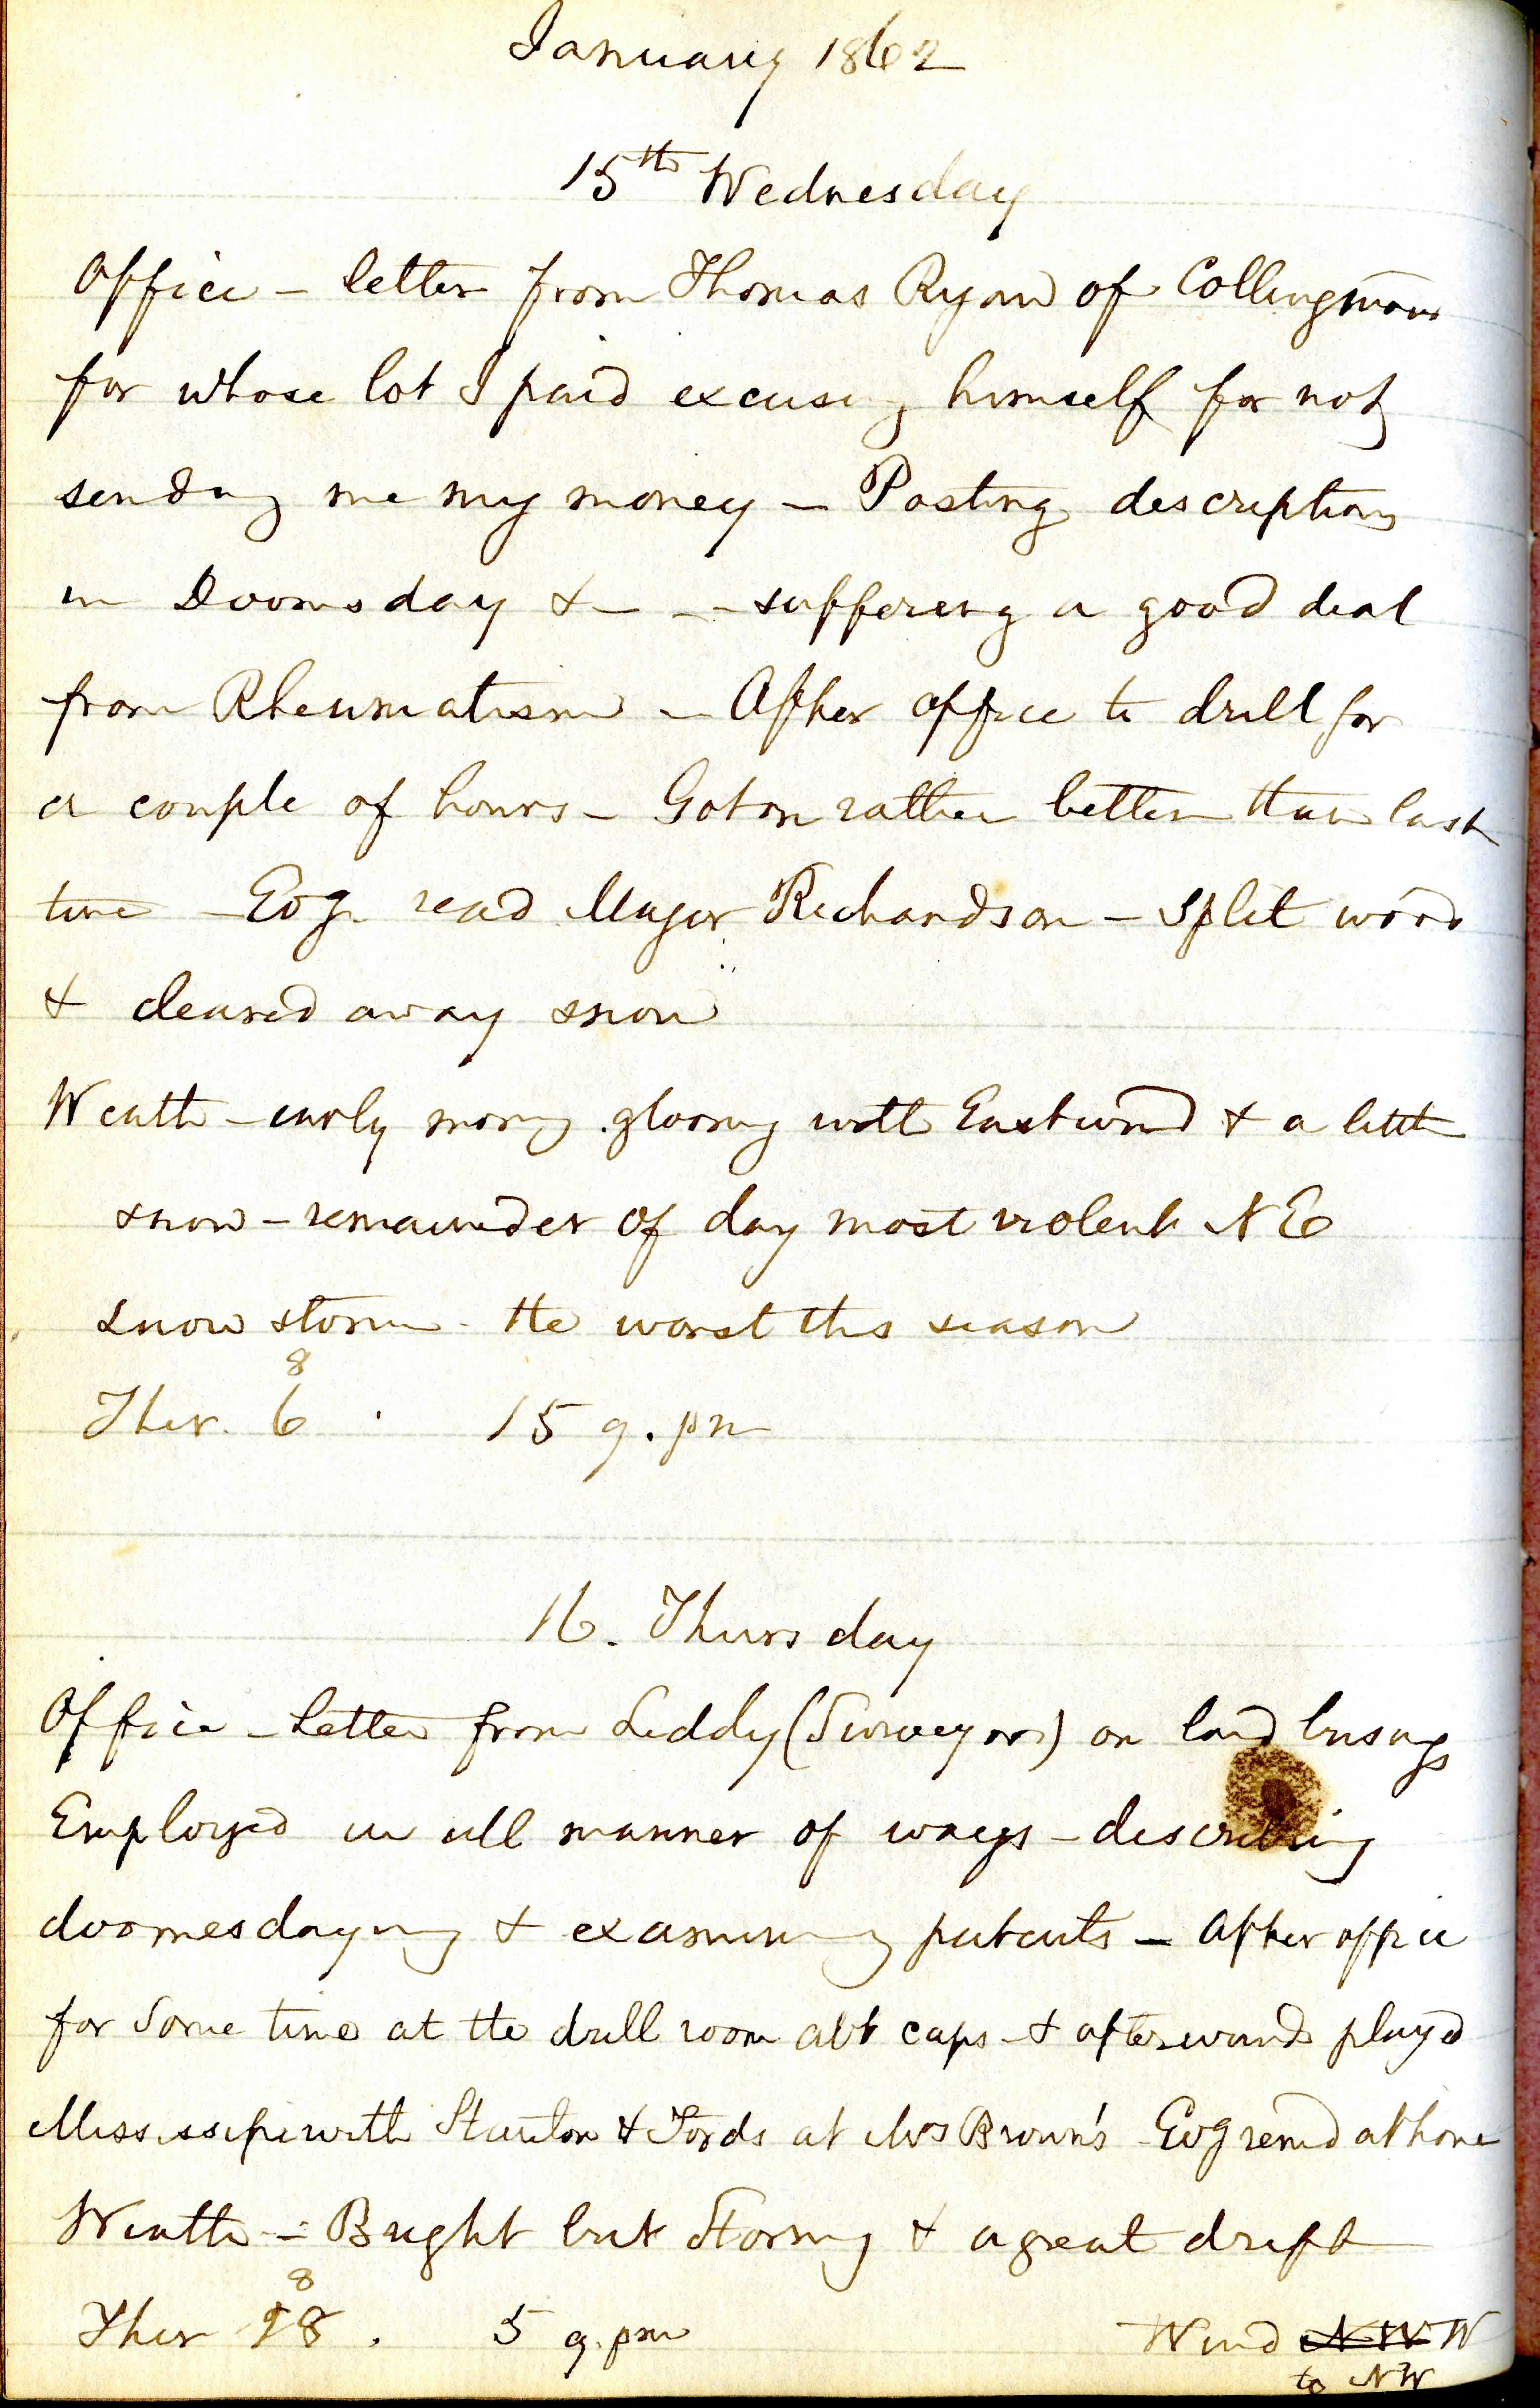 January 1862
15th Wednesday
Office - letter from Thomas Ryan of Collingwood
for whose lot I paid excusing himself for not
sending me my money - Posting descriptions
in Doomsday & - - suffering a good deal
from Rheumatism - After office to drill for
a couple of hours - Got on rather better than last
time - Evg. read Major Richardson - split wood
& cleared away snow
Weath - early morng gloomy with East wind & a little
snow - remainder of day most violent N E
snow storm - the worst this season
8
Ther. 6 . 15 9. pm
16. Thursday
Office - letter from Liddy (Surveyor) on land
Employed in all manner of ways - describing
doomesdaying & examining patents - After office
for some time at the drill room abt caps - & afterwards played
Mississipi with Stanton & Fords at Mrs Brown's - Evg remd at home
Weath - Bright but Stormy & a great drift
8
Ther 18 . 5 9. pm Wind N W W
to NW